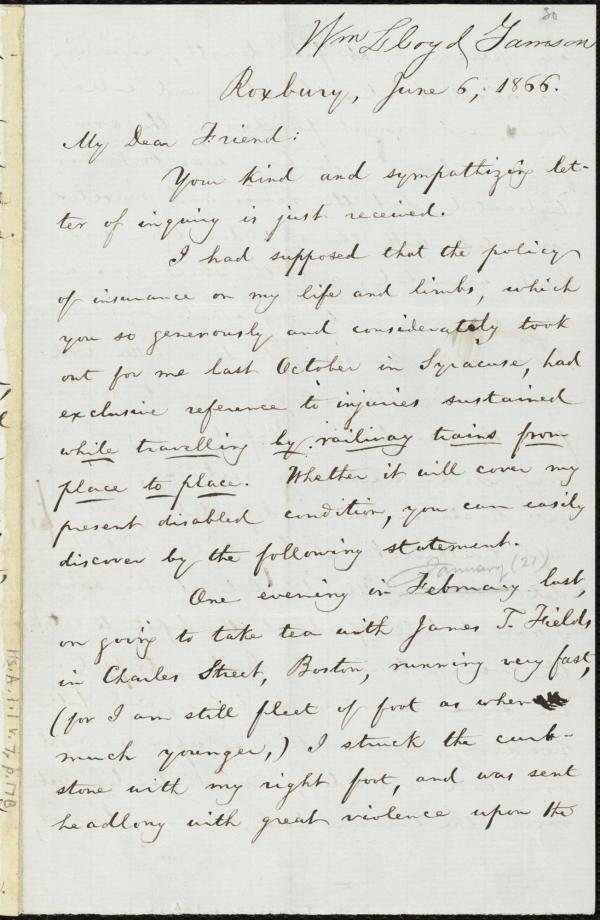 30
Wm Lloyd Garrison
Roxbury, June 6, 1866.
My Dear Friend:
Your kind and sympathizing let-
ter of inquiry is just received.
I had supposed that the policy
of insurance on my life and limbs, which
you so generously and considerately took
out for me last October in Syracuse, had
exclusive reference to injuries sustained
while travelling by railway trains from
place to place. Whether it will cover my
present disabled condition, you can easily
discover by the following statement.
January (21)
One evening in February last,
on going to take tea with James T. Fields
in Charles Street, Boston, running very fast,
(for I am still fleet of foot as when
much younger,) I struck the curb-
stone with my right foot, and was sent
headlong with great violence upon the
Ms.A.1.1 v.7, p.17B